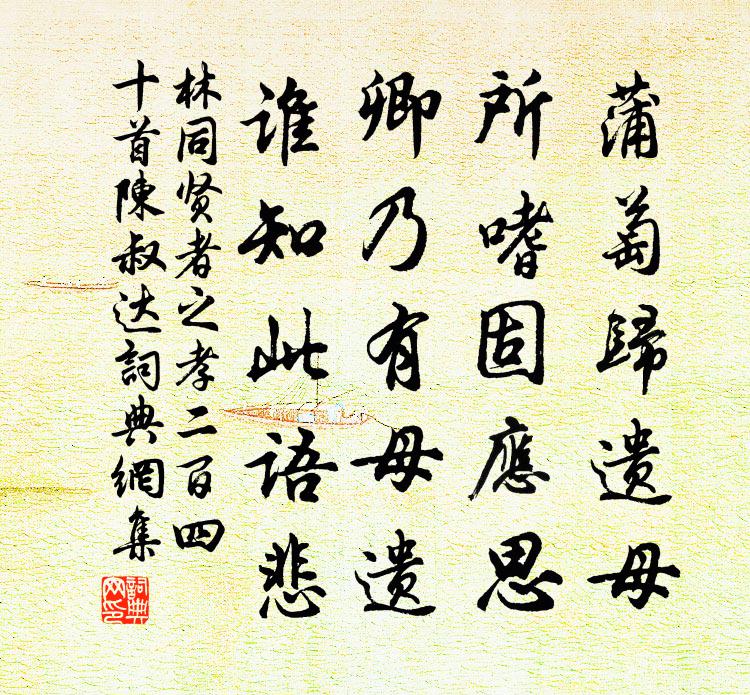 蒲萄歸遺母
所嗜固應思
卿乃有母遺
誰知此語悲
林同贤者之孝二百四
十首陳叔达詞典網集
詞典网印